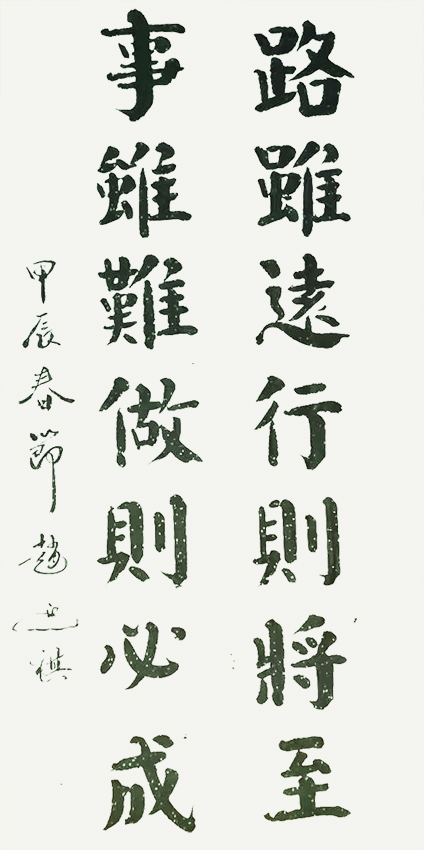 路雖遠行則將至
事雖難做則必成
甲辰春節趙